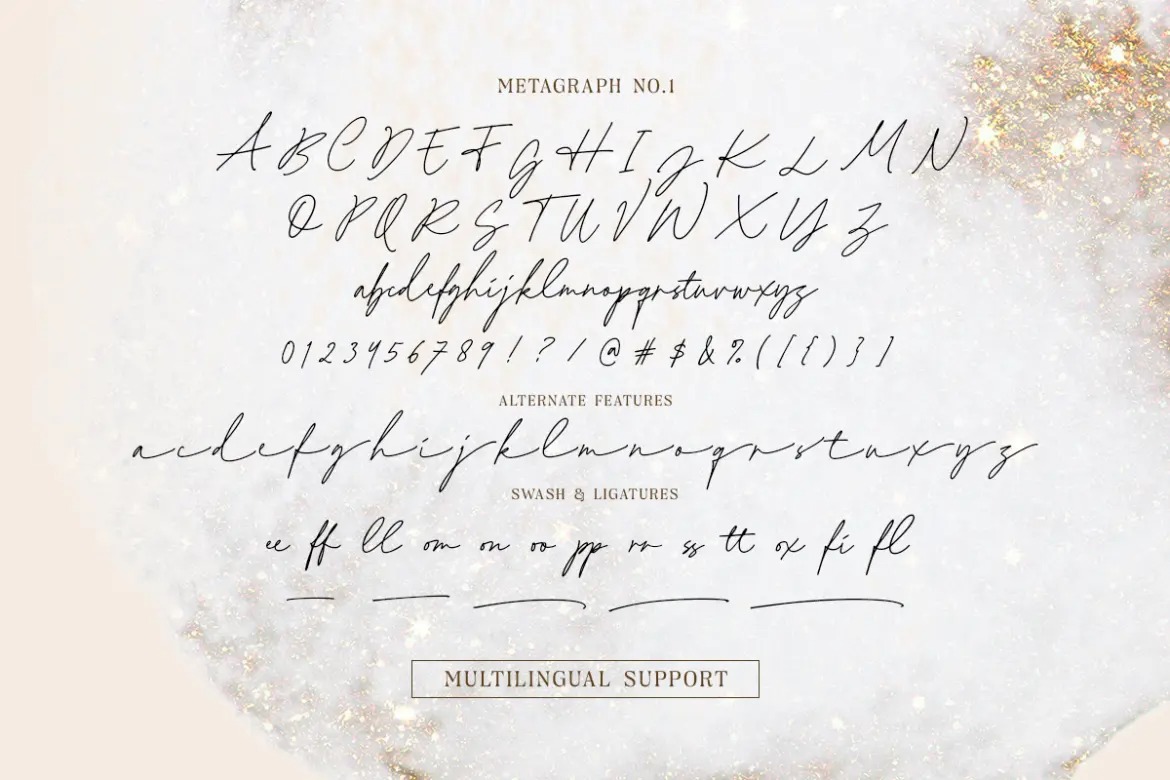 METAGRAPH NO.1
A B C D E F G H I J K L M N
O P Q R S T U V W X Y Z
abcdefghijklmnopqrstuvwxyz
0 1 2 3 4 5 6 7 8 9 ! ? / @ # $ & % ( [ { ) } ]
ALTERNATE FEATURES
a c d e f g h i j k l m n o q r s t u x y z
SWASH & LIGATURES
ee ff ll om on oo pp rn ss tt ox fi fl
MULTILINGUAL SUPPORT